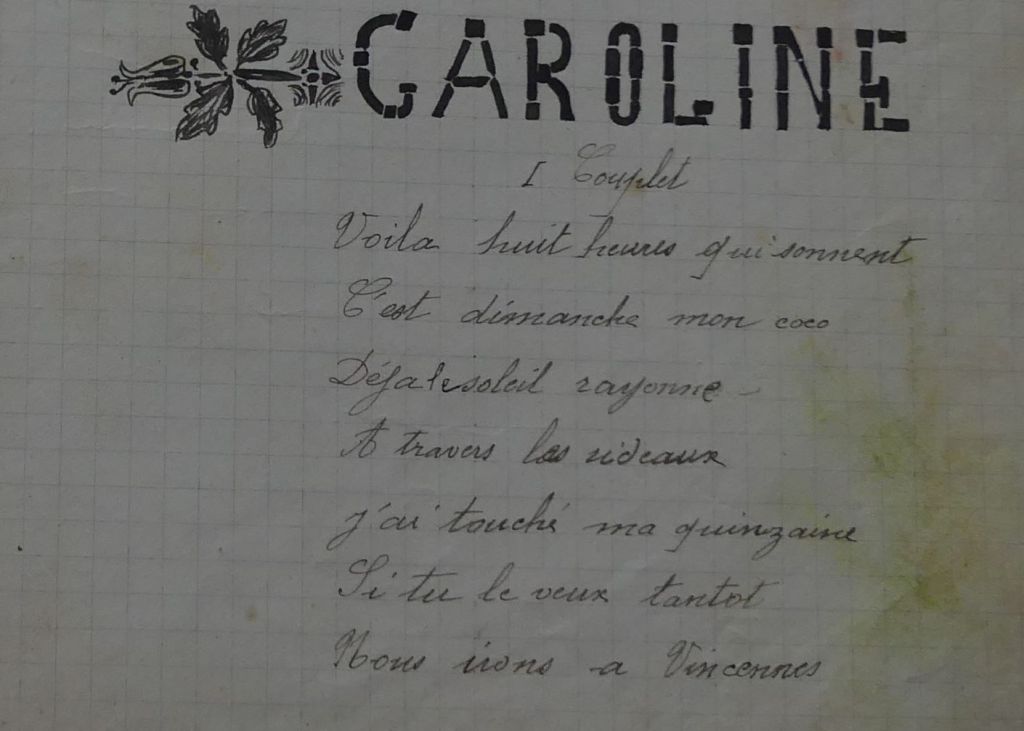 CAROLINE
I Couplet
Voila huit heures qui sonnent
C'est dimanche mon coco
Déja le soleil rayonne
A travers les rideaux
j'ai touché ma quinzaine
Si tu le veux tantot
Nous irons a Vincennes